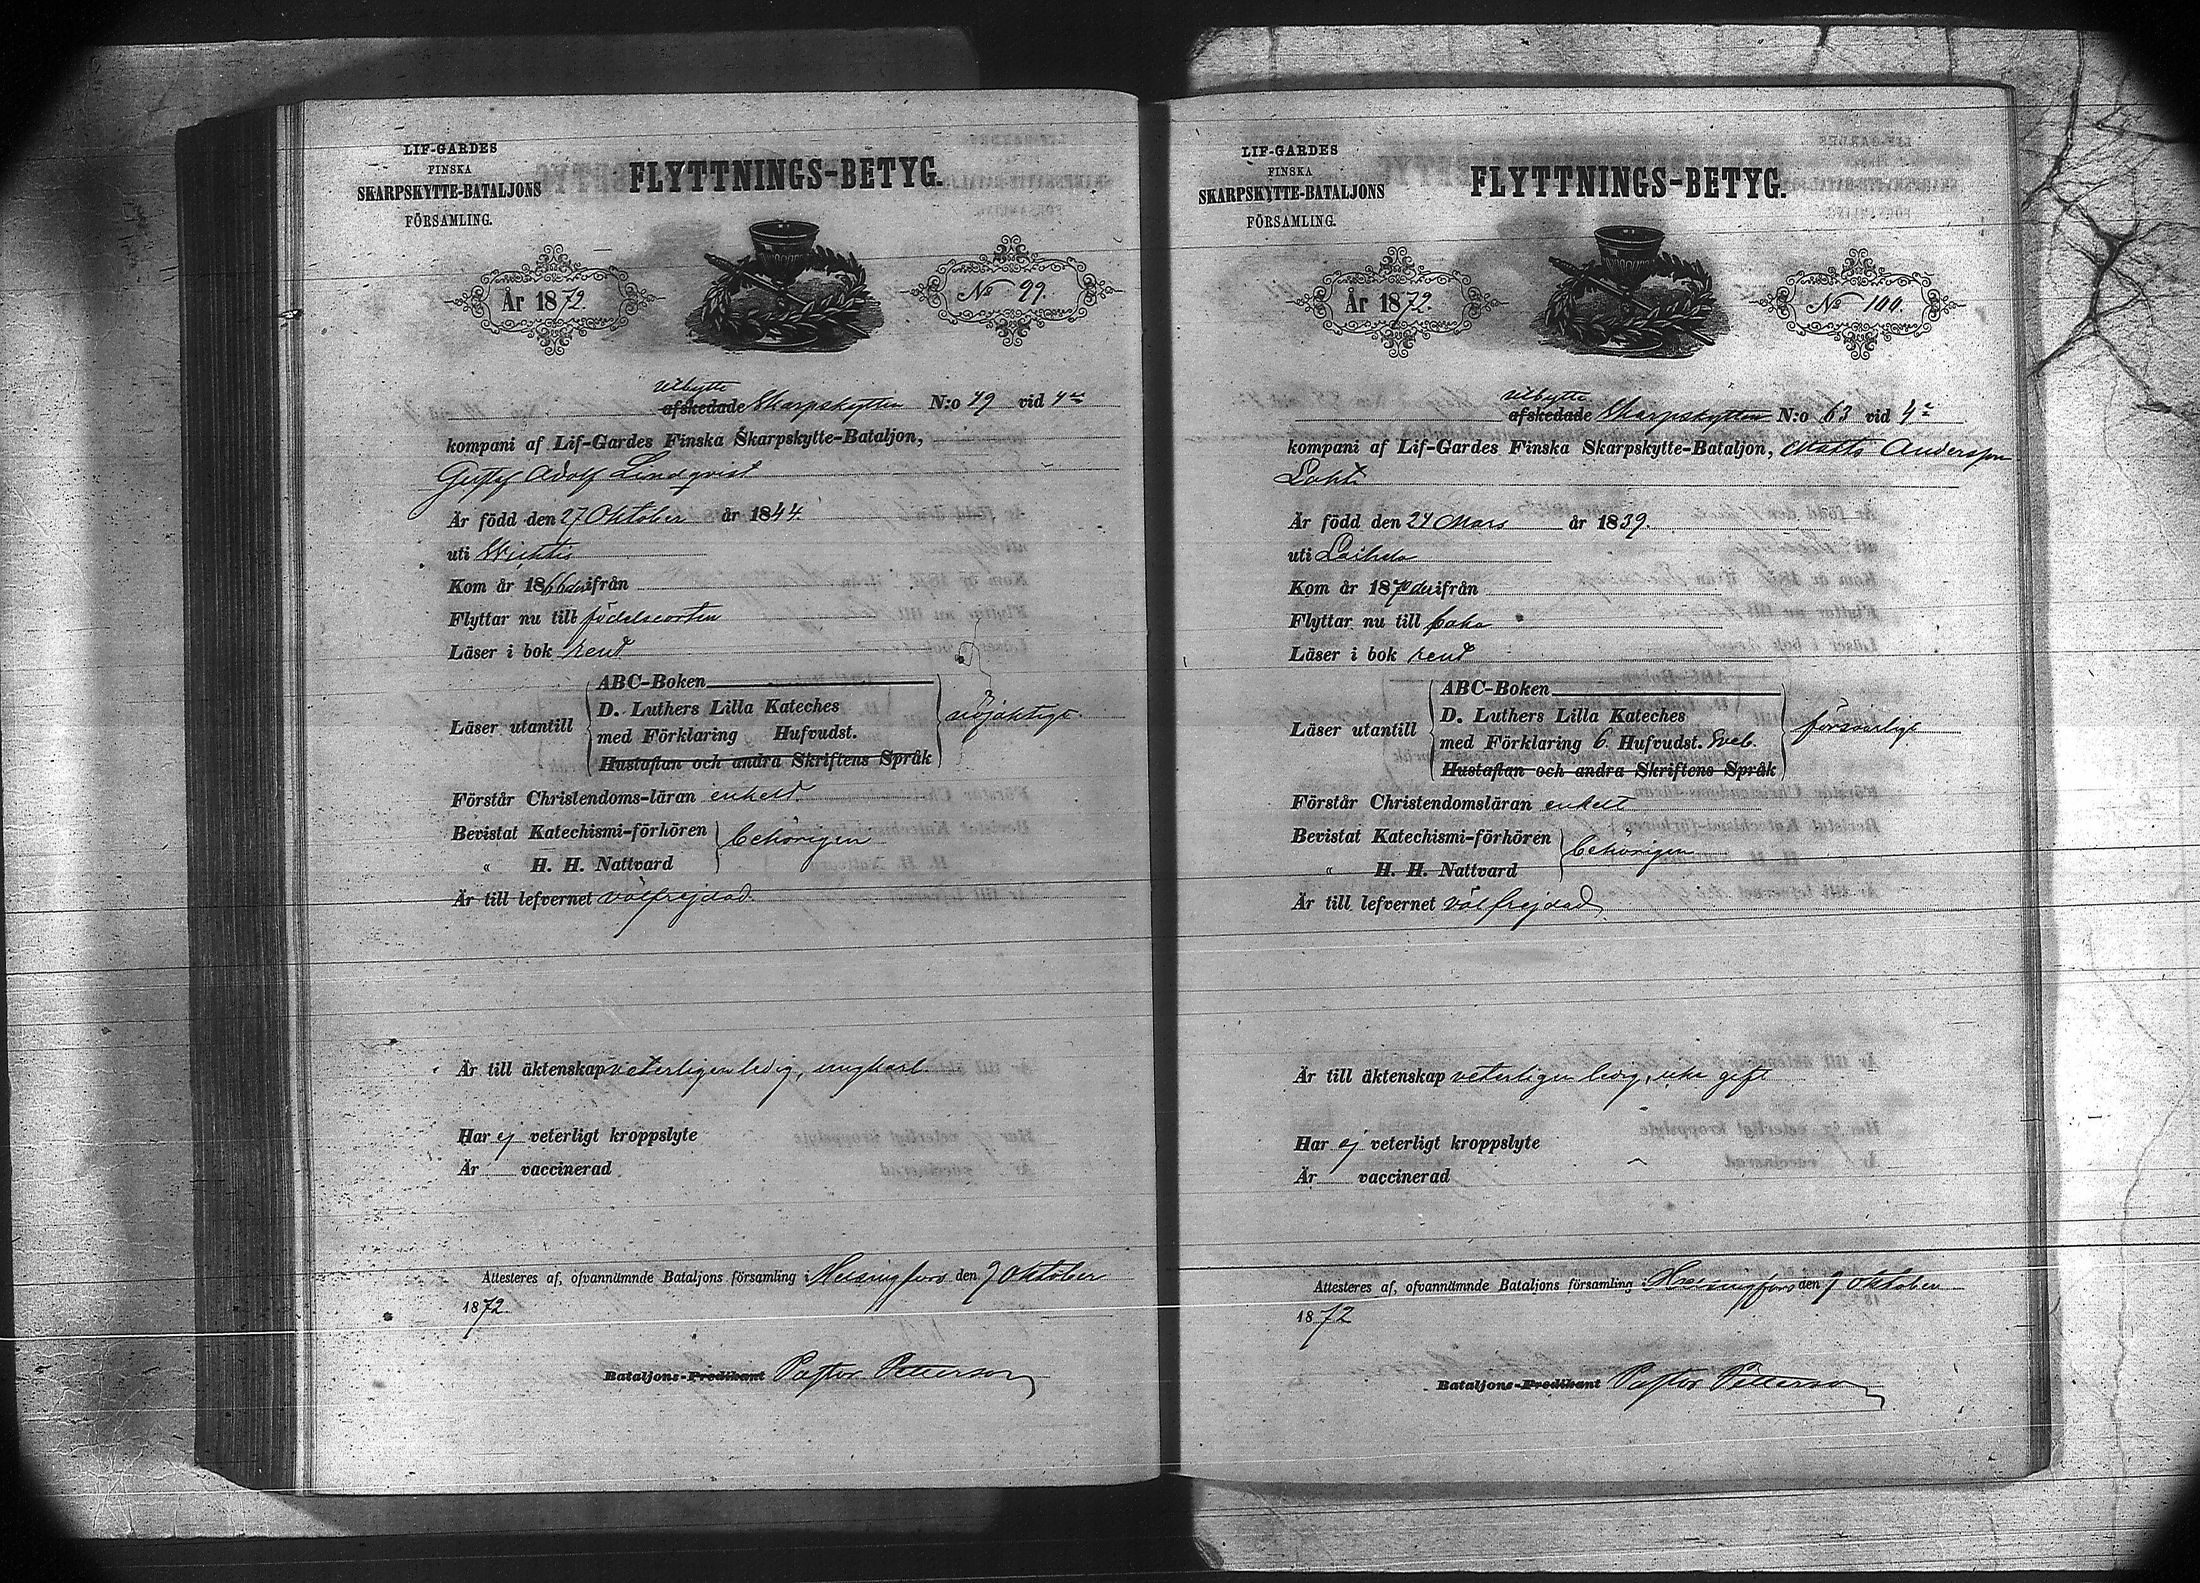 LIF-GARDES
FINSKA
SKARPSKYTTE-BATALJONS
FÖRSAMLING.
FLYTTNINGS-BETYG.
År 1872.
No 99.
utbytte
afskedade Skarpskytten N:o 49 vid 4de
kompani af Lif-Gardes Finska Skarpskytte-Bataljon,
Gustaf Adolf Lindqvist
Är född den 27 Oktober år 1844.
uti Wichtis
Kom år 1866 ifrån
Flyttar nu till födelseorten
Läser i bok rent
Läser utantill
ABC-Boken
D. Luthers Lilla Kateches
med Förklaring Hufvudst.
Hustaflan och andra Skriftens Språk
nöjaktigt.
Förstår Christendoms-läran enkelt.
Bevistat Katechismi-förhören
" H. H. Nattvard
behörigen
Är till lefvernet välfrejdad.
Är till äktenskap veterligen ledig, ungkarl.
Har ej veterligt kroppslyte
Är vaccinerad
Attesteres af, ofvannämnde Bataljons församling i Helsingfors den 9 Oktober
1872.
Bataljons-Predikant Pastor Petterson
LIF-GARDES
FINSKA
SKARPSKYTTE-BATALJONS
FÖRSAMLING.
FLYTTNINGS-BETYG.
År 1872.
No 100.
utbytte
afskedade Skarpskytten N:o 63 vid 4de
kompani af Lif-Gardes Finska Skarpskytte-Bataljon, Matts Andersson
Lahti
Är född den 24 Mars år 1839.
uti Laihela
Kom år 1870 ifrån
Flyttar nu till
Läser i bok rent
Läser utantill
ABC-Boken
D. Luthers Lilla Kateches
med Förklaring 6 Hufvudst. Sveb.
Hustaflan och andra Skriftens Språk
försvarligt
Förstår Christendomsläran enkelt
Bevistat Katechismi-förhören
" H. H. Nattvard
behörigen
Är till lefvernet välfrejdad
Är till äktenskap veterligen ledig, icke gift
Har ej veterligt kroppslyte
Är vaccinerad
Attesteres af, ofvannämnde Bataljons församling i Helsingfors den 9 Oktober
1872
Bataljons-Predikant Pastor Petterson